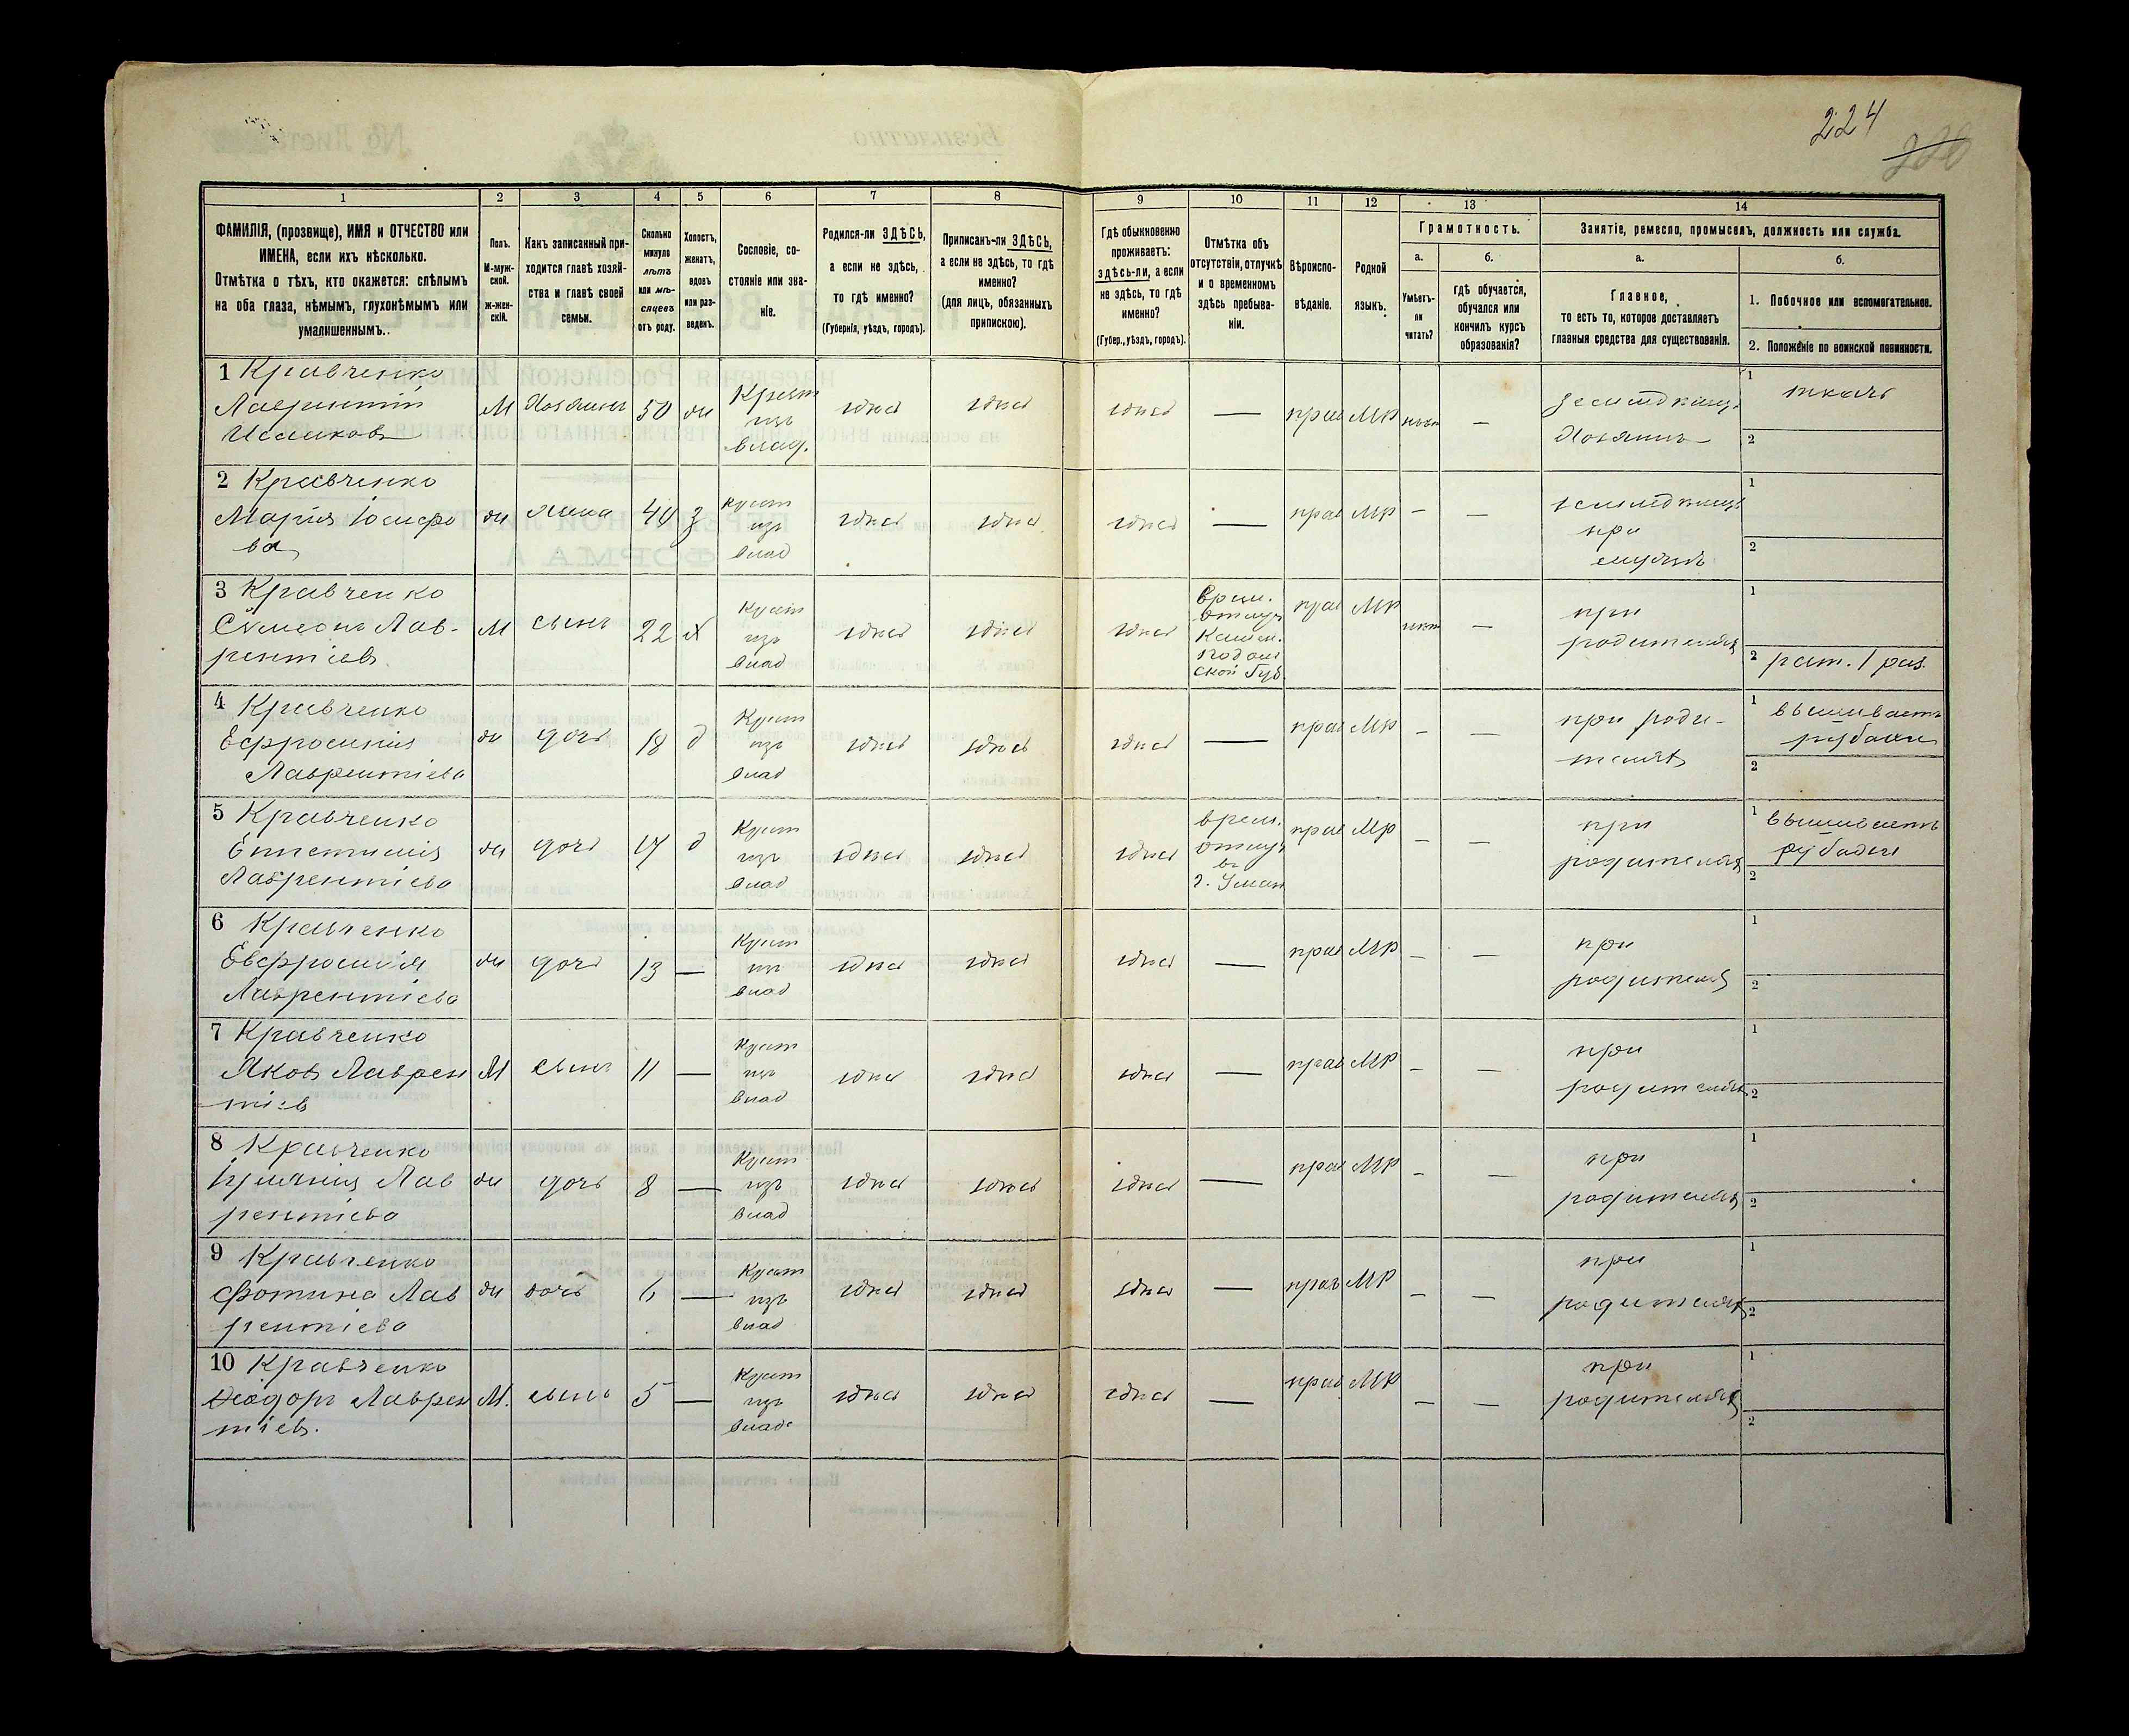 224
220
1
2
3
4
5
6
7
8
9
10
11
12
13
14
ФАМИЛІЯ, (прозвище), ИМЯ и ОТЧЕСТВО или
ИМЕНА, если ихъ нѣсколько.
Отмѣтка о тѣхъ, кто окажется: слѣпымъ
на оба глаза, нѣмымъ, глухонѣмымъ или
умалишеннымъ.
Полъ.
М-муж-
ской.
ж-жен-
скій.
Какъ записанный при-
ходится главѣ хозяй-
ства и главѣ своей
семьи.
Сколько
минуло
лѣтъ
или мѣ-
сяцевъ
отъ роду.
Холостъ,
женатъ,
вдовъ
или раз-
веденъ.
Сословіе, со-
стояніе или зва-
ніе.
Родился-ли ЗДѢСЬ,
а если не здѣсь,
то гдѣ именно?
(Губернія, уѣздъ, городъ).
Приписанъ-ли ЗДѢСЬ,
а если не здѣсь, то гдѣ
именно?
(для лицъ, обязанныхъ
припискою).
Гдѣ обыкновенно
проживаетъ:
здѣсь-ли, а если
не здѣсь, то гдѣ
именно?
(Губер., уѣздъ, городъ).
Отмѣтка объ
отсутствіи, отлучкѣ
и о временномъ
здѣсь пребыва-
ніи.
Вѣроиспо-
вѣданіе.
Родной
языкъ.
Грамотность.
а.
Умѣетъ-
ли
читать?
б.
гдѣ обучается,
обучался или
кончилъ курсъ
образованія?
Занятіе, ремесло, промыселъ, должность или служба.
а.
Главное,
то есть то, которое доставляетъ
главныя средства для существованія.
б.
1. Побочное или вспомогательное.
2. Положеніе по воинской повинности.
1 Кравченко
Лаврентій
Исаиковъ
М Хозяинъ 50 ж
Крест
изъ
влад.
здѣсь здѣсь здѣсь — прав МР нѣтъ —
земледѣлецъ
Хозяинъ
1 ткачъ
2
2 Кравченко
Марія Іосифо
ва
ж жена 44 з
Крест
изъ
влад
здѣсь здѣсь здѣсь — прав МР — —
земледѣлецъ
при
мужѣ
1
2
3 Кравченко
Сѵмеонъ Лав-
рентіевъ
М сынъ 22 х
Крест
изъ
влад
здѣсь здѣсь здѣсь
врем.
отлуч
Камен.
Подоль
ской Губ.
прав МР нѣтъ —
при
родителяхъ
1
2 рат. 1 раз.
4 Кравченко
Ефросинія
Лаврентіева
ж дочь 18 д
Крест
изъ
влад
здѣсь здѣсь здѣсь — прав МР — —
при роди-
теляхъ
1 вышиваетъ
рубахи
2
5 Кравченко
Епистимія
Лаврентіева
ж дочь 17 д
Крест
изъ
влад
здѣсь здѣсь здѣсь
врем.
отлуч
въ
г. Уман
прав МР — —
при
родителяхъ
1 вышиваетъ
рубахи
2
6 Кравченко
Евфросинія
Лаврентіева
ж дочь 13 —
Крест
изъ
влад
здѣсь здѣсь здѣсь — прав МР — —
при
родителяхъ
1
2
7 Кравченко
Яковъ Лаврен
тіевъ
М сынъ 11 —
Крест
изъ
влад
здѣсь здѣсь здѣсь — прав МР — —
при
родителяхъ
1
2
8 Кравченко
Лав
рентіева
ж дочь 8 —
Крест
изъ
влад
здѣсь здѣсь здѣсь — прав МР — —
при
родителяхъ
1
2
9 Кравченко
Фотина Лав
рентіева
ж дочь 6 —
Крест
изъ
влад
здѣсь здѣсь здѣсь — прав МР — —
при
родителяхъ
1
2
10 Кравченко
Ѳеодоръ Лаврен
тіевъ.
М. сынъ 5 —
Крест
изъ
влад
здѣсь здѣсь здѣсь — прав МР — —
при
родителяхъ
1
2